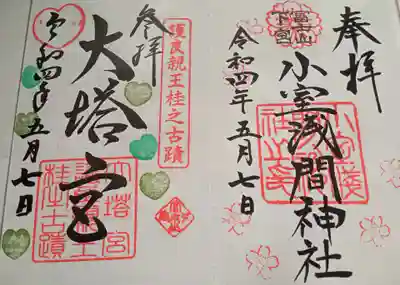 奉拝
富士山
下宮
小室浅間神社
令和四年五月七日
参拝
護良親王桂之古蹟
大塔宮
大塔宮
護良親王
桂古蹟
令和四年五月七日